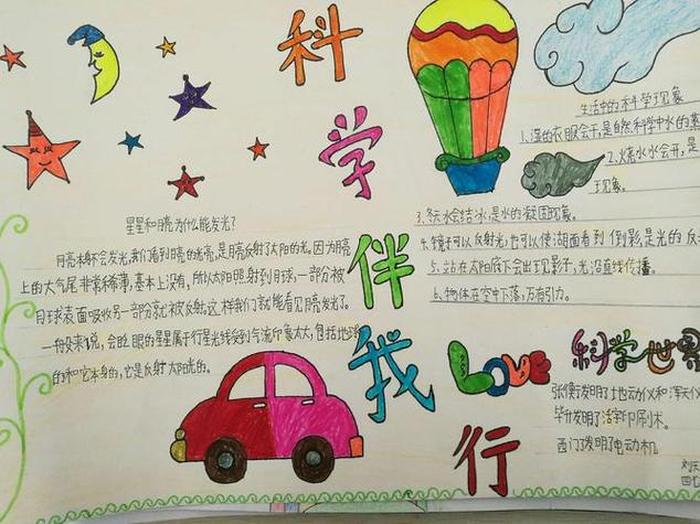 科
学
伴
我
行
星星和月亮为什么能发光?
月亮本身不会发光,我们看到月亮的光亮,是月亮反射了太阳的光。因为月亮
上的大气层非常稀薄,基本上没有,所以太阳照射到月球,一部分被
月球表面吸收另一部分就被反射。这样我们就能看见月亮发光了。
一般来说,会眨眼的星星属于行星光线受到气流印象太大,包括地球
的和它本身的,它是反射太阳光的。
生活中的科学现象
1.湿的衣服会干,是自然科学中水的蒸
2.烧水水会开,是
现象。
3.冬天水会结冰,是水的凝固现象。
4.镜子可以反射光,也可以使湖面看到倒影,是光的反
5.站在太阳底下会出现影子,光沿直线传播。
6.物体在空中下落,万有引力。
LOVE 科学世界
张衡发明了地动仪和浑天仪
毕升发明了活字印刷术。
西门子发明了电动机